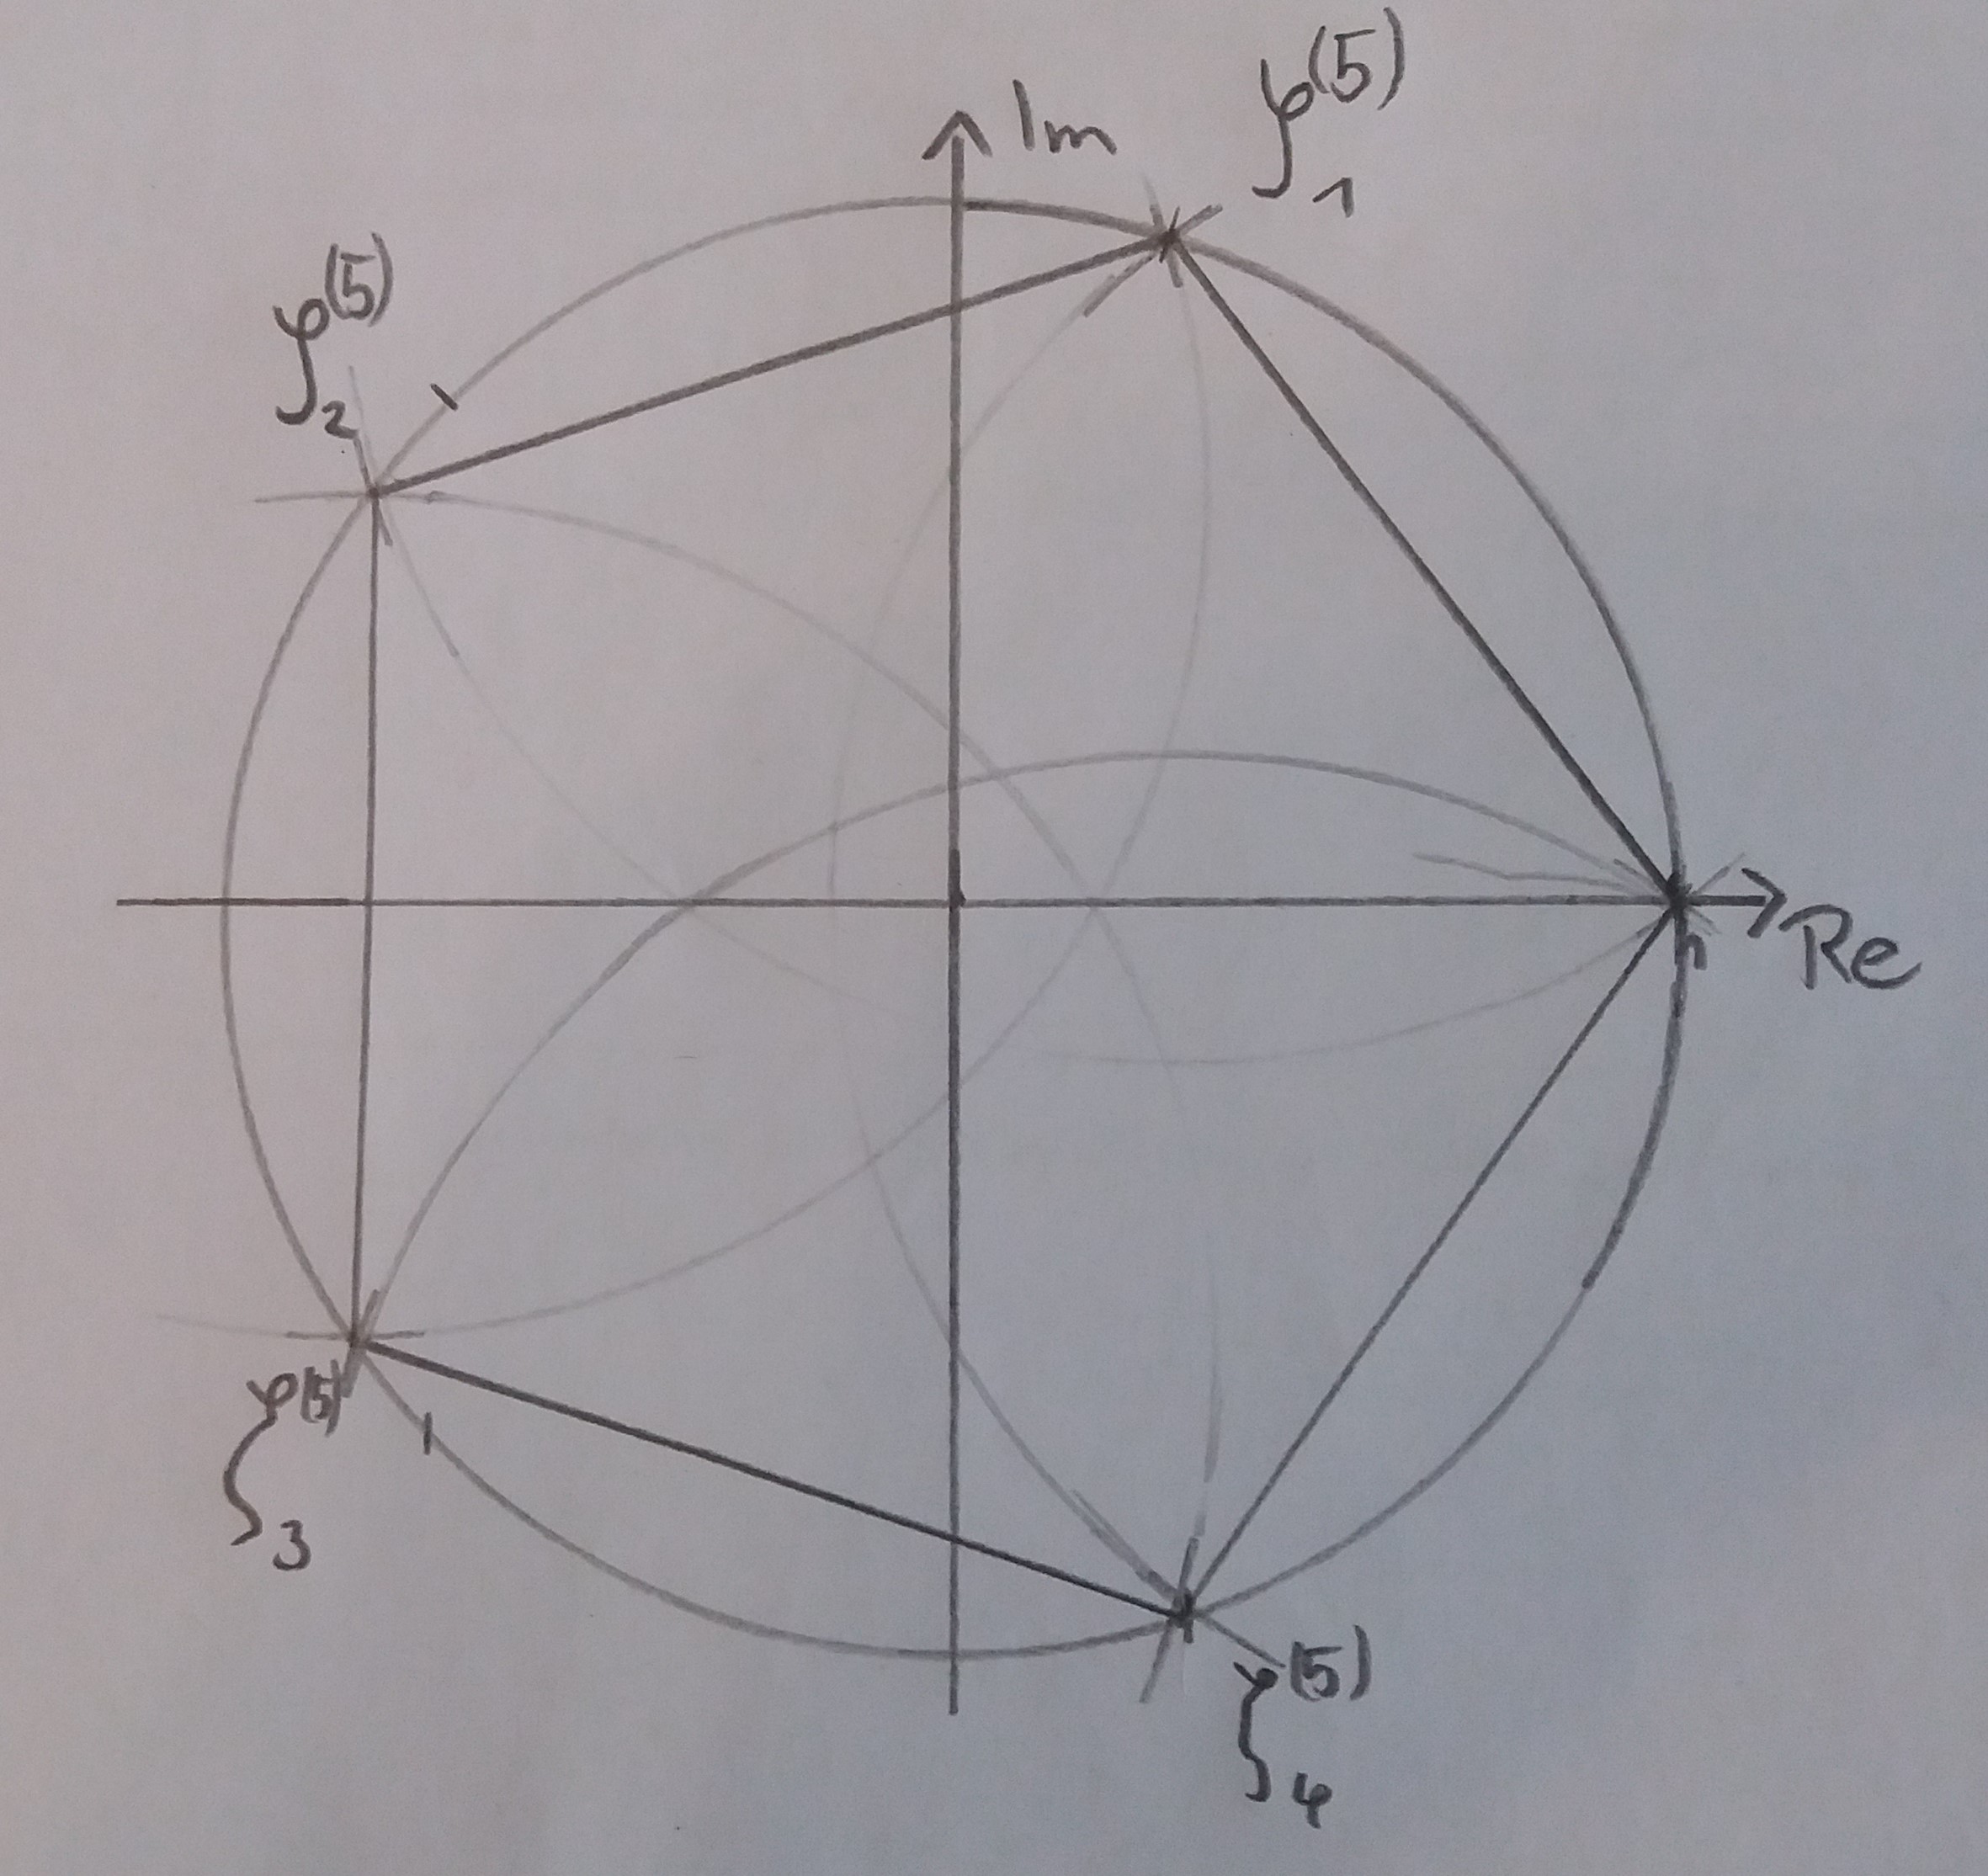 Im
ζ₁⁽⁵⁾
ζ₂⁽⁵⁾
1
Re
ζ₃⁽⁵⁾
ζ₄⁽⁵⁾